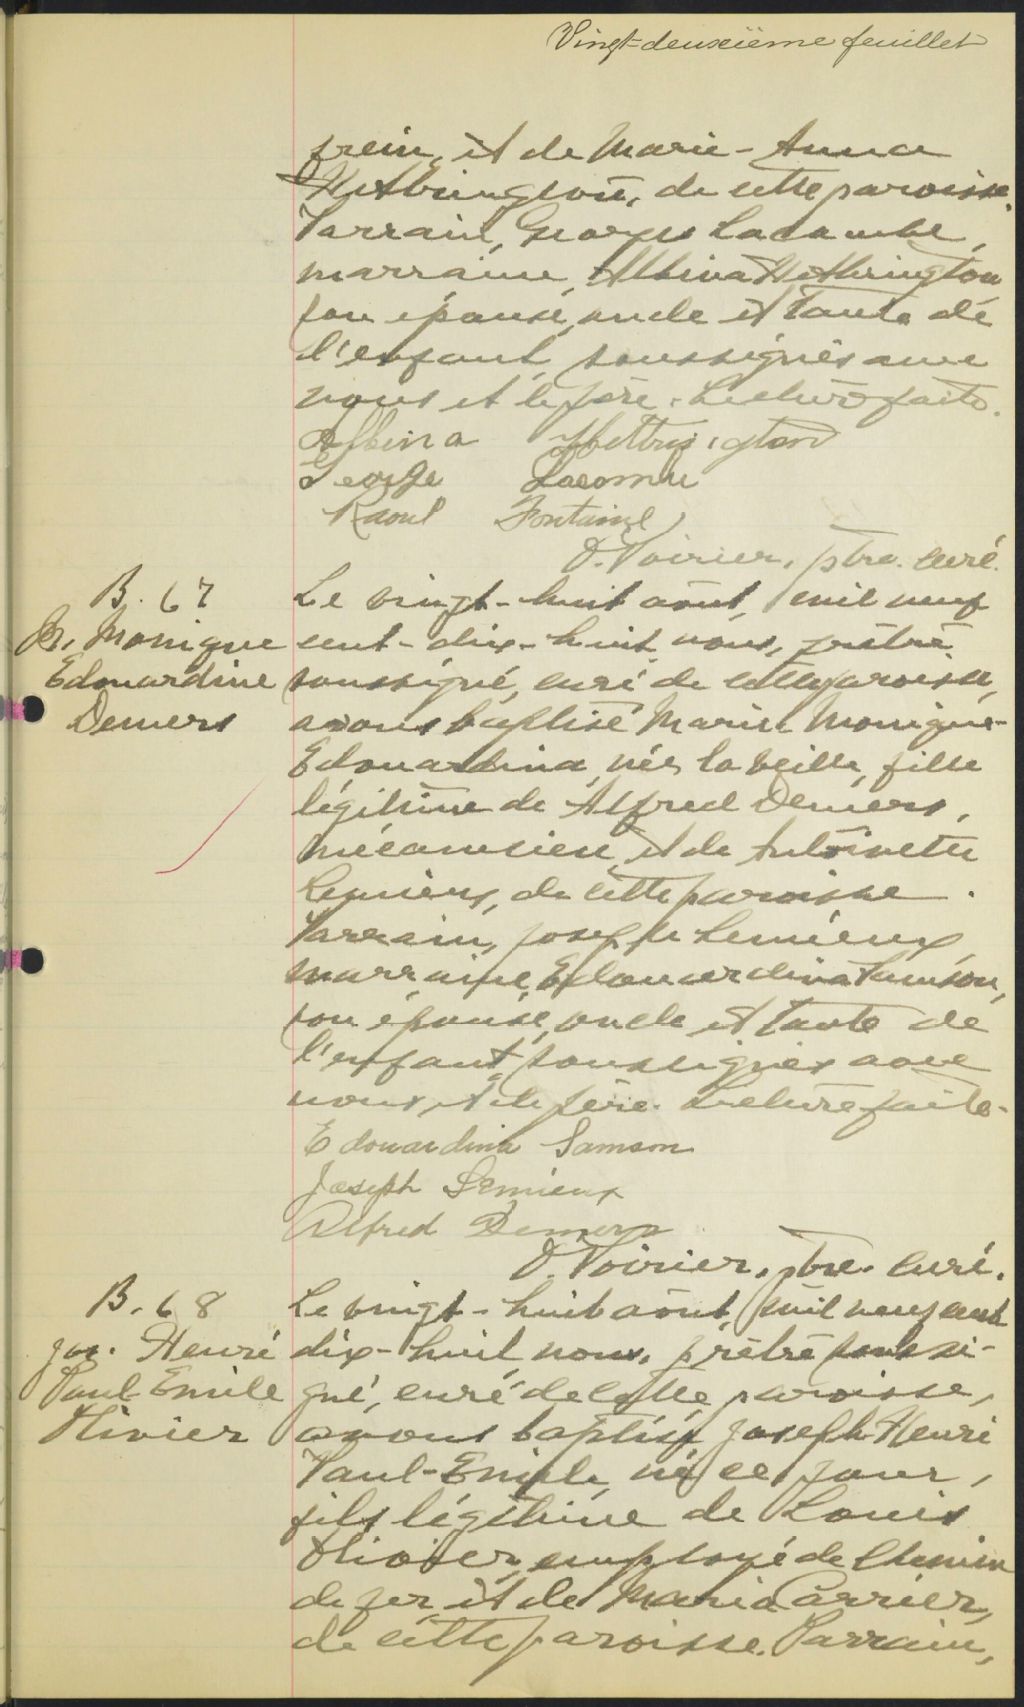 Vingt-deuxième feuillet
frein, et de Marie-Anna
Hethrington, de cette paroisse.
Parrain, Georges Lacombe,
marraine, Albina Hethrington
son épouse, oncle et tante de
l'enfant, soussignés avec
nous et le père. Lecture faite.
Albina Hettrington
George Lacombe
Raoul Fontaine
O. Poirier, ptre. curé.
B. 67
M. Monique
Edouardine
Demers
Le vingt-huit août, mil neuf
cent-dix-huit, nous, prêtre
soussigné, curé de cette paroisse,
avons baptisé Marie Monique-
Edouardina, née la veille, fille
légitime de Alfred Demers,
mécanicien, et de Antoinette
Lemieux, de cette paroisse.
Parrain, Joseph Lemieux,
marraine, Edouardina Samson,
son épouse, oncle et tante de
l'enfant, soussignés avec
nous, et le père. Lecture faite.
Edouardina Samson
Joseph Lemieux
Alfred Demers
O. Poirier, ptre. curé.
B. 68
Jos. Henri
Paul-Emile
Olivier
Le vingt-huit août, mil neuf cent
dix-huit nous, prêtre soussi-
gné, curé de cette paroisse,
avons baptisé Joseph-Henri
Paul-Emile, né ce jour,
fils légitime de Louis
Olivier, employé de chemin
de fer, et de Maria Carrier,
de cette paroisse. Parrain,